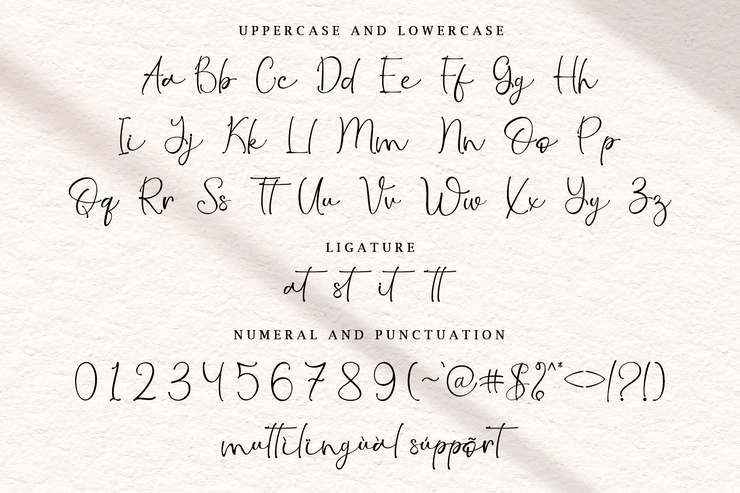 UPPERCASE AND LOWERCASE
Aa Bb Cc Dd Ee Ff Gg Hh
Ii Jj Kk Ll Mm Nn Oo Pp
Qq Rr Ss Tt Uu Vv Ww Xx Yy Zz
LIGATURE
at st it tt
NUMERAL AND PUNCTUATION
0123456789(~`@#$%^*<>/?!)
multilingùàl súppõrt